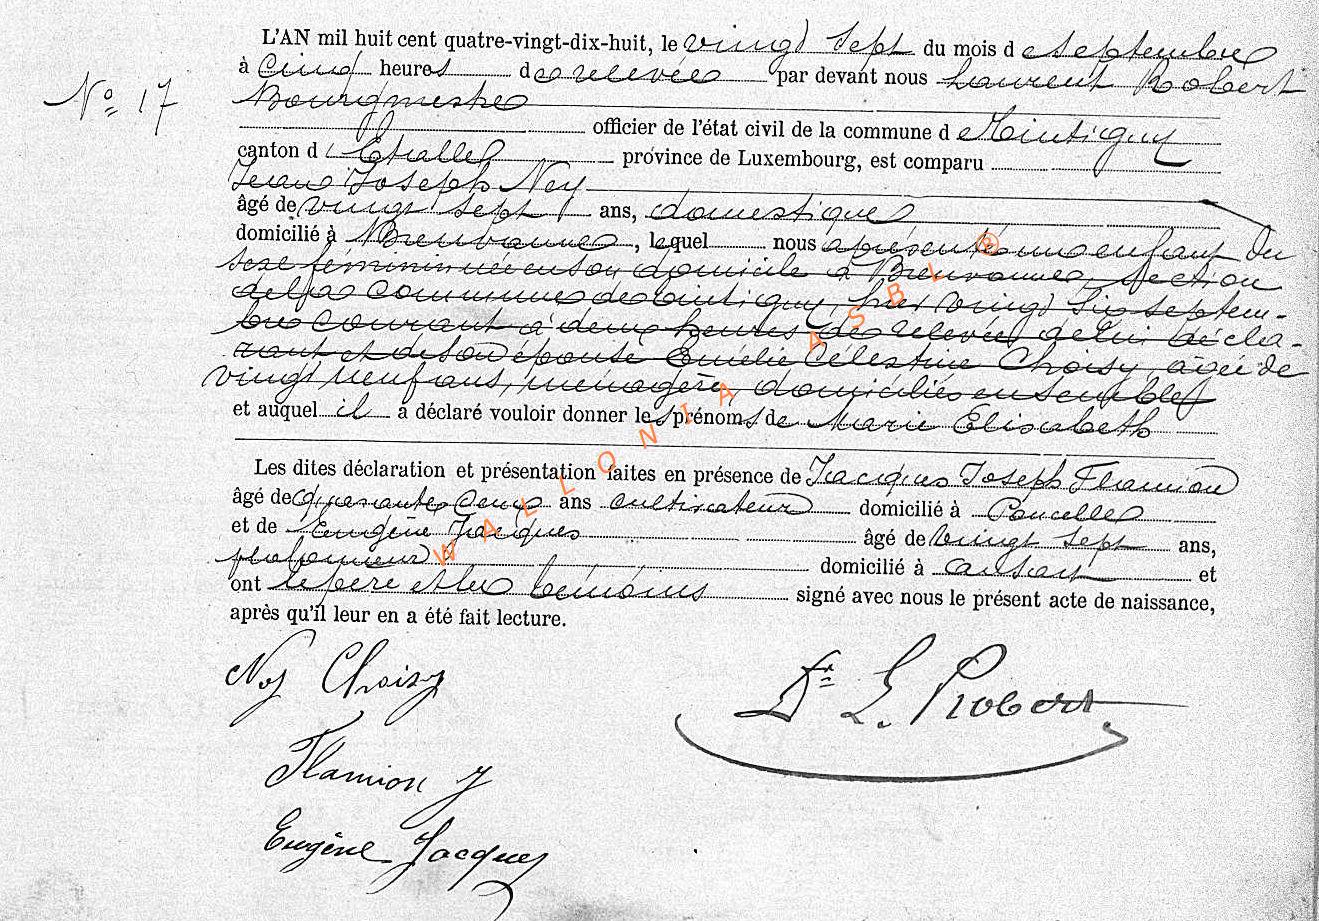 L'AN mil huit cent quatre-vingt-dix-huit, le vingt sept du mois de septembre
N° 17
à cinq heures de relevée par devant nous Laurent Robert
Bourgmestre
officier de l'état civil de la commune de Tintigny
canton d'Etalle province de Luxembourg, est comparu
Jean Joseph Ney
âgé de vingt sept ans, domestique
domicilié à Breuvanne, lequel nous a présenté un enfant du
sexe féminin né en son domicile à Breuvanne, section
de la commune de Tintigny, hier vingt six septem-
bre courant à deux heures de relevée de lui décla-
rant et de son épouse Emélie Célestine Choisy, âgée de
vingt neuf ans, ménagère, domiciliés ensemble
et auquel il a déclaré vouloir donner les prénoms de Marie Elisabeth
Les dites déclaration et présentation faites en présence de Jacques Joseph Flamion
âgé de quarante deux ans cultivateur domicilié à Poncelle
et de Eugène Jacques âgé de vingt sept ans,
domicilié à Ansart et
ont le père et les témoins signé avec nous le présent acte de naissance,
après qu'il leur en a été fait lecture.
Ney Choisy
Dr L. Robert
Flamion J
Eugène Jacques
WALLONIA ASBL ®